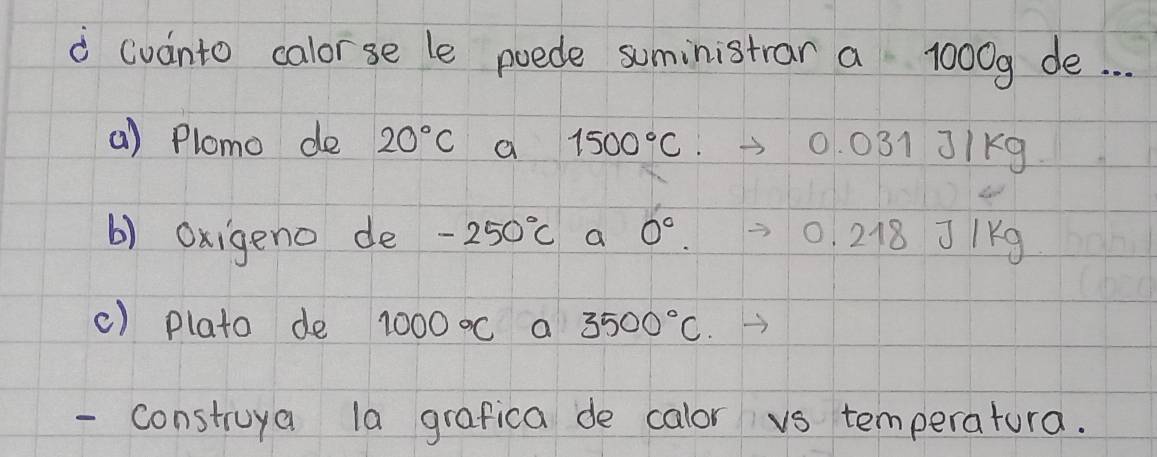 ¿ cuánto calor se le puede suministrar a 1000g de ...
a) Plomo de 20°C a 1500°C. → 0.031 J/Kg
b) oxígeno de -250°C a 0°. → 0.218 J/Kg
c) plata de 1000°C a 3500°C. →
- construya la grafica de calor vs temperatura.